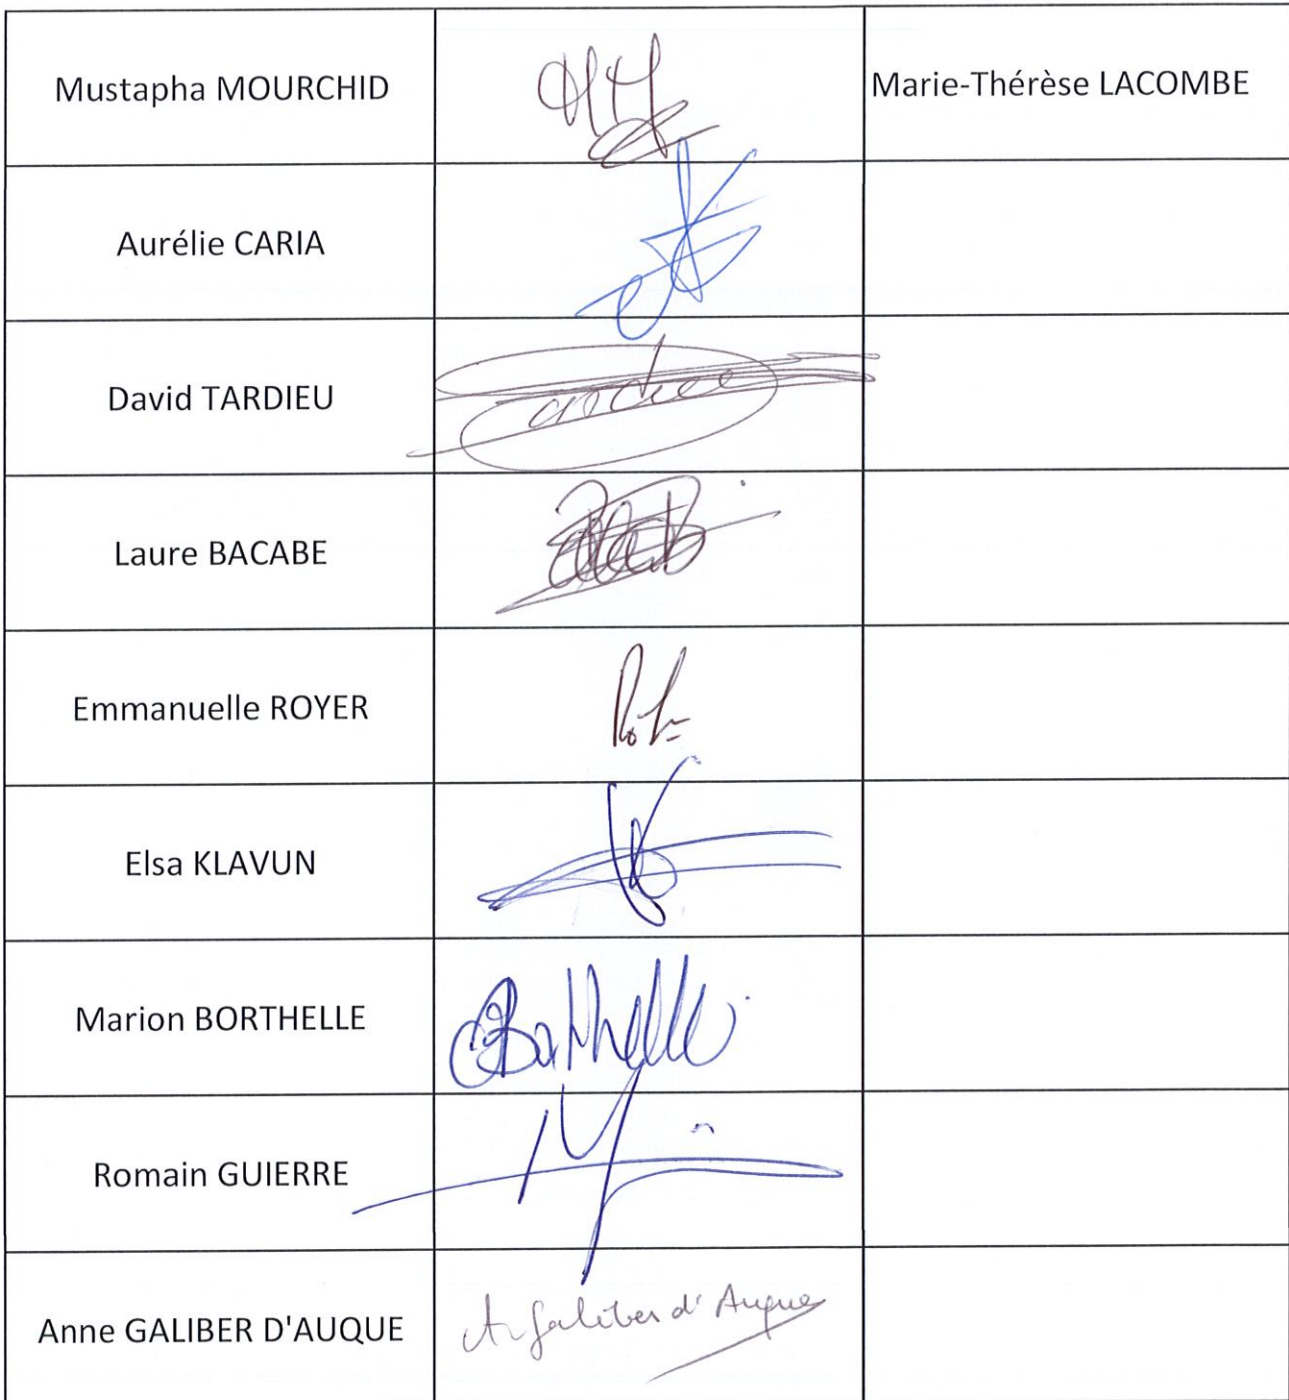 Mustapha MOURCHID
Marie-Thérèse LACOMBE
Aurélie CARIA
David TARDIEU
Laure BACABE
Emmanuelle ROYER
Elsa KLAVUN
Marion BORTHELLE
Romain GUIERRE
Anne GALIBER D'AUQUE
A. Galiber d'Auque